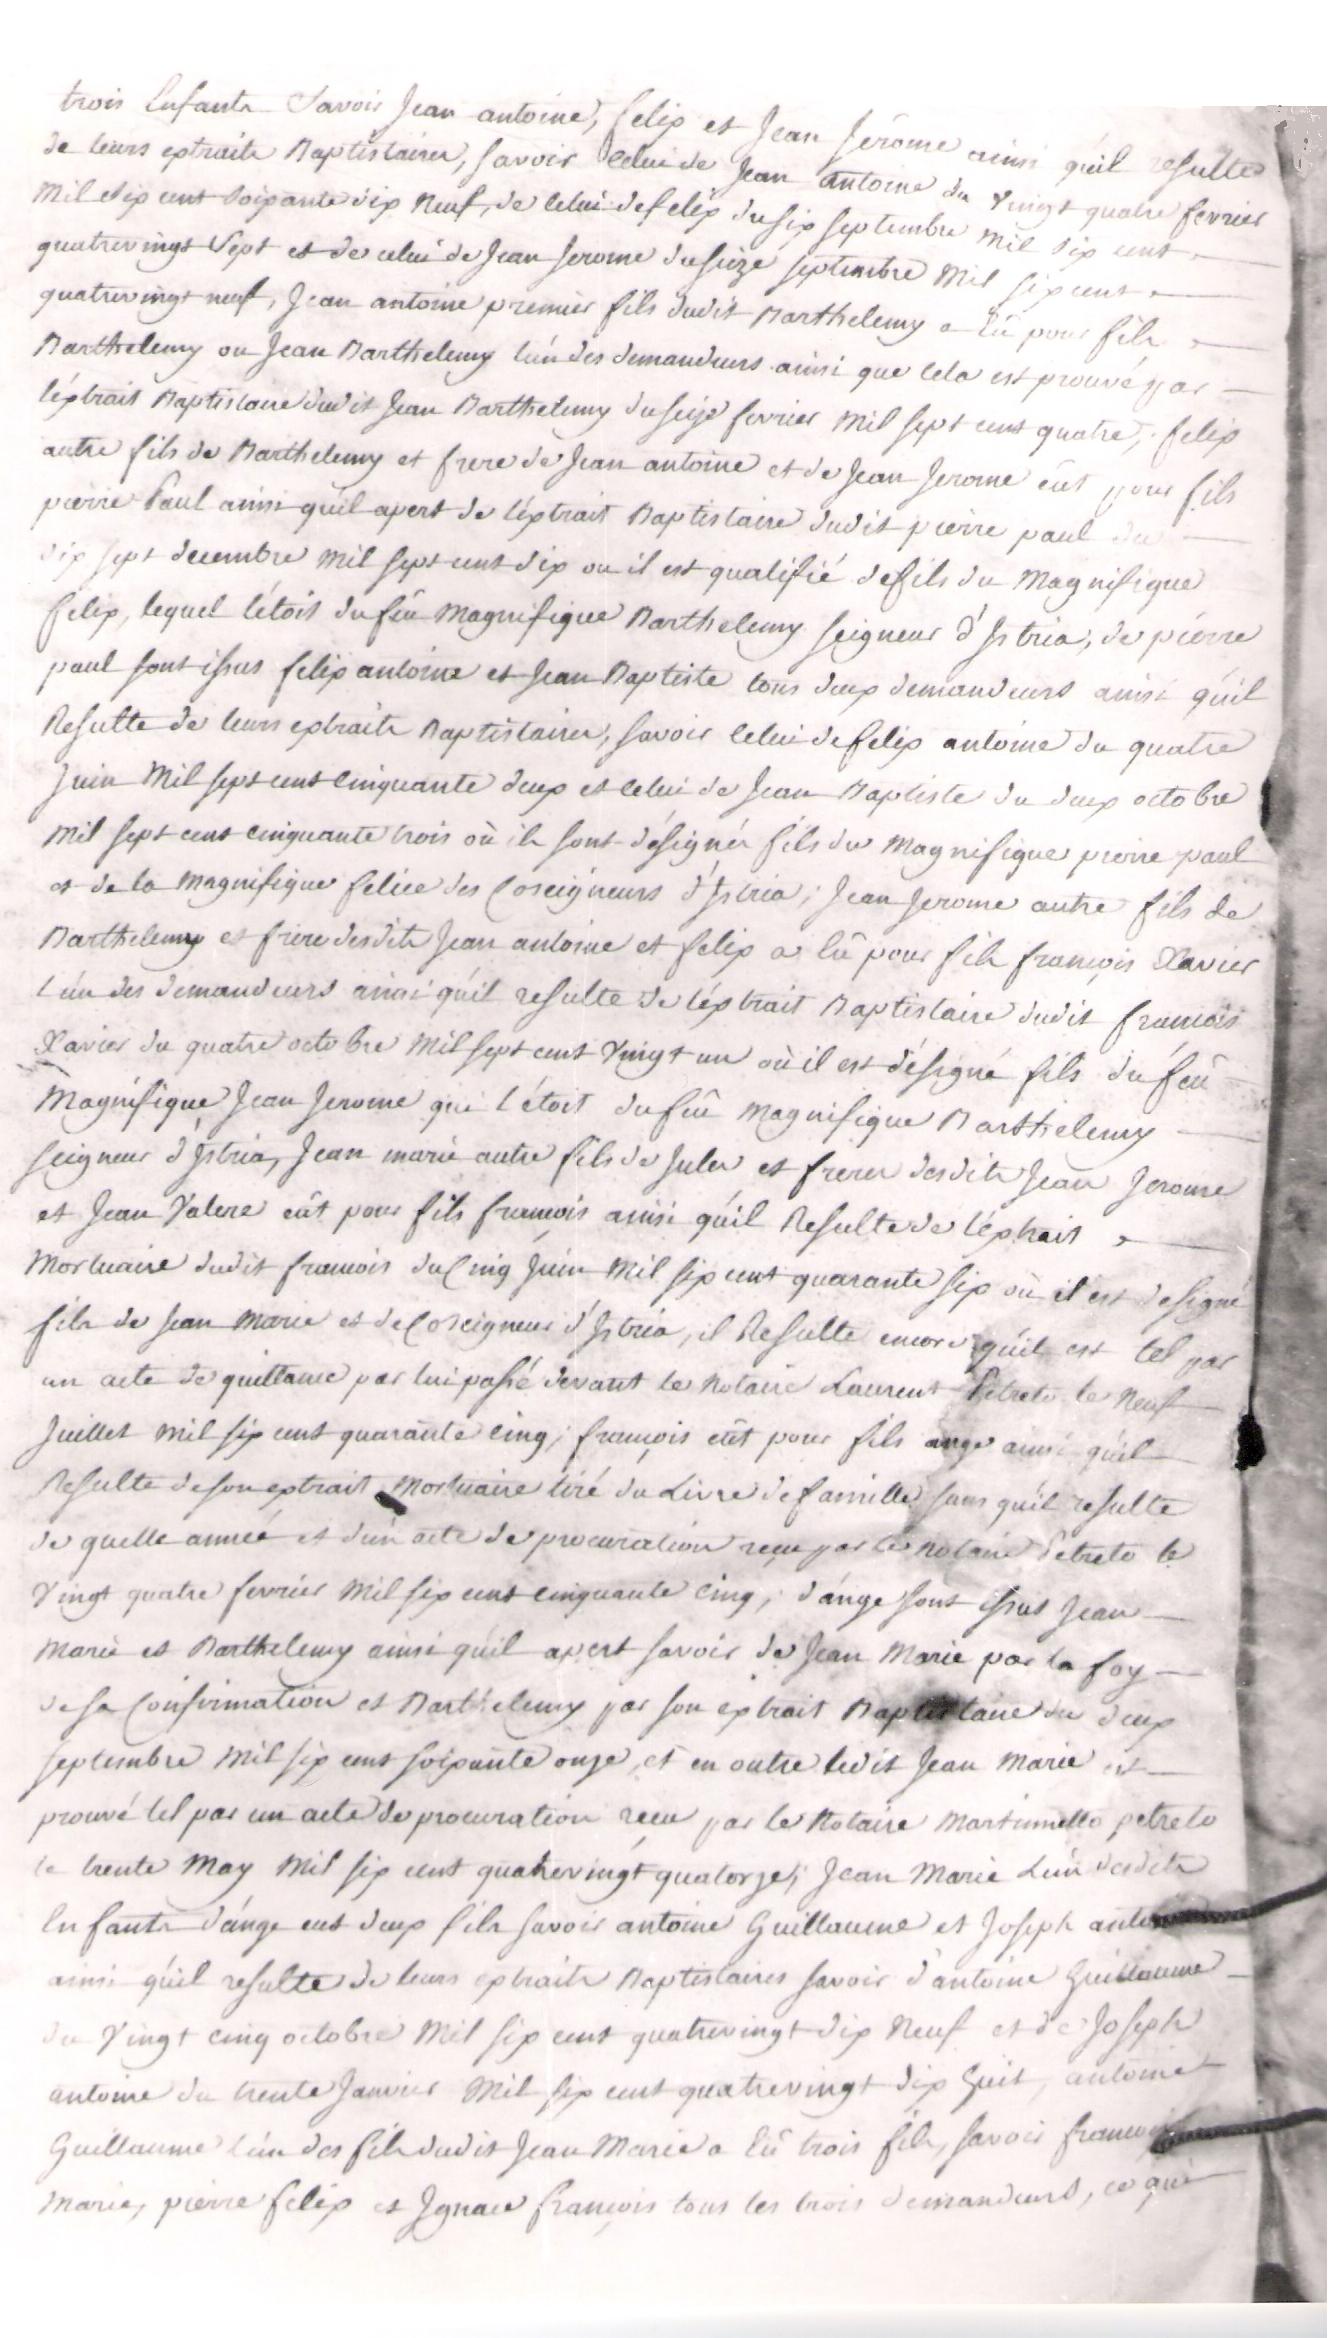 trois Enfants Savoir Jean antoine, felix et Jean Jerôme ainsi qu'il resulte
de leurs extraits Baptistaires, savoir Celui de Jean antoine du vingt quatre fevrier
Mil Six cent Soixante dix Neuf, de Celui de felix du six septembre Mil Six cent
quatrevingt Sept et de celui de Jean Jerome du seize septembre Mil six cent
quatrevingt neuf, Jean antoine premier fils dudit Barthelemy a Eû pour fils
Barthelemy ou Jean Barthelemy l'un des demandeurs ainsi que Cela est prouvé par
l'éxtrait Baptistaire dudit Jean Barthelemy du seize fevrier Mil sept cent quatre, felix
autre fils de Barthelemy et frere de Jean antoine et de Jean Jerome eût pour fils
pierre Paul ainsi qu'il apert de l'éxtrait Baptistaire dudit pierre paul du
dix sept decembre Mil sept cent dix ou il est qualifié de fils du Magnifique
felix, lequel l'étoit du feû Magnifique Barthelemy seigneur d'Istria, de pierre
paul sont issus felix antoine et Jean Baptiste tous deux demandeurs ainsi qu'il
Resulte de leurs extraits Baptistaires, savoir Celui de felix antoine du quatre
Juin Mil sept cent Cinquante deux et Celui de Jean Baptiste du deux octobre
Mil sept cent cinquante trois où ils sont désignés fils du Magnifique pierre paul
et de la Magnifique felice des Coseigneurs d'Istria; Jean Jerome autre fils de
Barthelemy et frere desdits Jean antoine et felix a Eû pour fils françois Xavier
l'un des demandeurs ainsi qu'il resulte de l'éxtrait Baptistaire dudit françois
Xavier du quatre octobre Mil sept cent Vingt un où il est désigné fils du feû
Magnifique Jean Jerome qui l'étoit du feû Magnifique Barthelemy
seigneur d'Istria, Jean marie autre fils de Jules et freres desdits Jean Jerome
et Jean Valere eût pour fils françois ainsi qu'il Resulte de l'éxtrait
Mortuaire dudit françois du Cinq Juin Mil six cent quarante six où il est designé
fils de Jean Marie et de Coseigneur d'Istria, il Resulte encore qu'il est tel par
un acte de quittance par lui passé devant le Notaire Laurent Petreto le Neuf
Juillet Mil six cent quarante cinq; françois eût pour fils ange ainsi qu'il
Resulte de son extrait Mortuaire tiré du Livre de famille sans qu'il resulte
de quelle année et d'un acte de procuration reçu par le Notaire Petreto le
Vingt quatre fevrier Mil six cent cinquante Cinq; d'ange sont issus Jean
Marie et Barthelemy ainsi qu'il apert savoir de Jean Marie par la foy
de sa Confirmation et Barthelemy par son extrait Baptistaire du deux
septembre Mil six cent soixante onze, et en outre ledit Jean Marie est
prouvé tel par un acte de procuration reçu par le Notaire Martinnello petreto
le trente May Mil six cent quatrevingt quatorze; Jean Marie L'un desdits
Enfants d'ange eut deux fils savoir antoine Guillaume et Joseph antoine
ainsi qu'il resulte de leurs extraits Baptistaires savoir d'antoine Guillaume
du Vingt cinq octobre Mil six cent quatrevingt dix Neuf et de Joseph
antoine du trente Janvier Mil six cent quatrevingt dix huit, antoine
Guillaume l'un des fils dudit Jean Marie a Eû trois fils, savoir françois
Marie, pierre felix et Ignace françois tous les trois demandeurs, ce qui